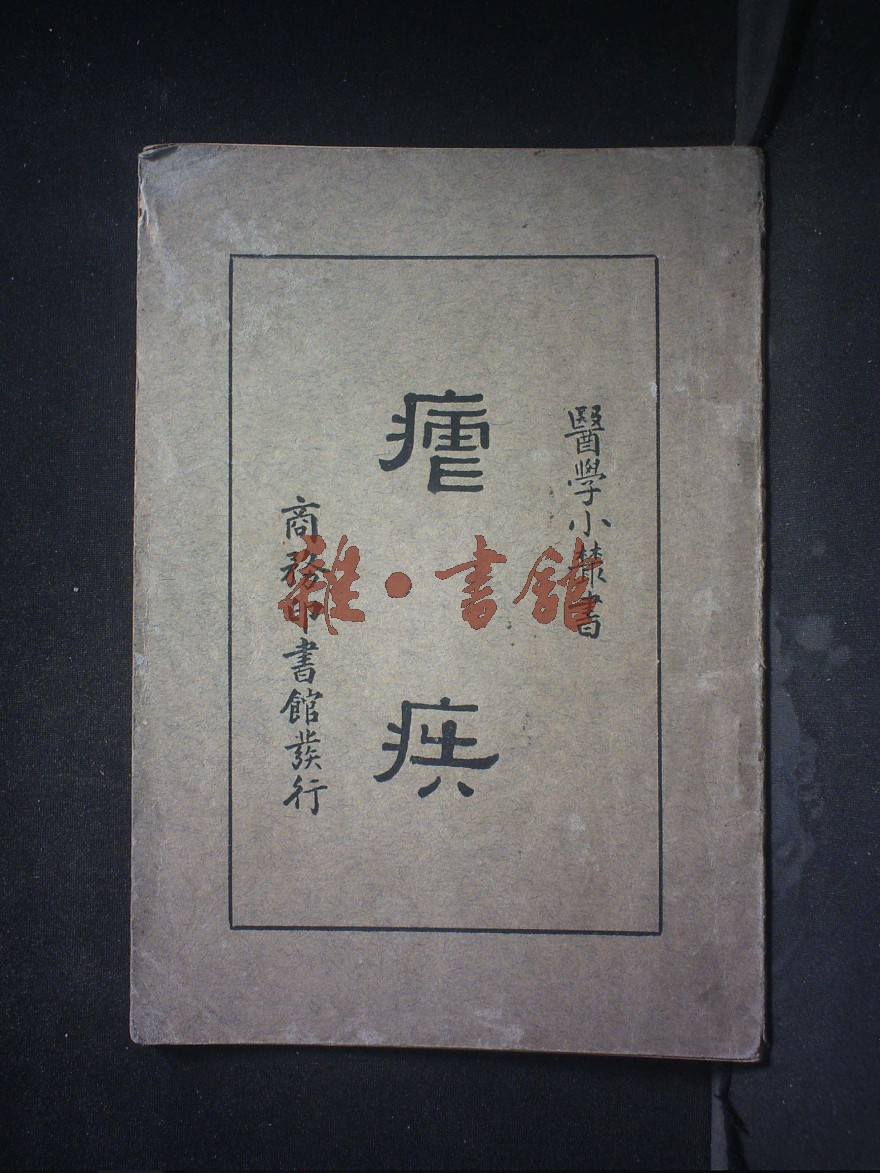 醫學小叢書
瘧疾
商務印書館發行
雜·書館